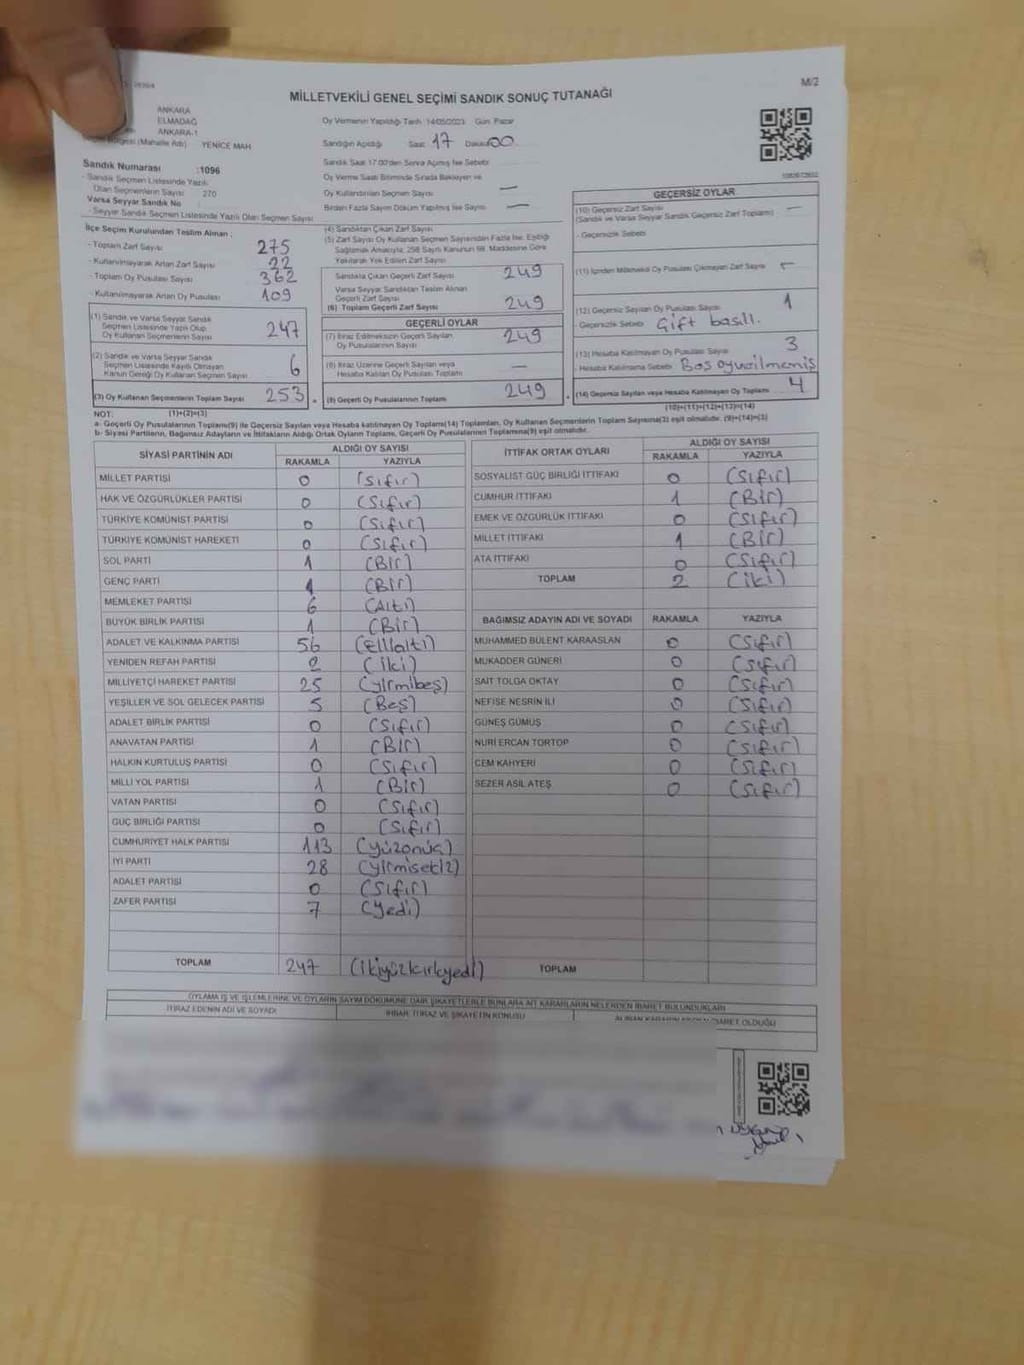 MİLLETVEKİLİ GENEL SEÇİMİ SANDIK SONUÇ TUTANAĞI
M/2
ANKARA
ELMADAĞ
ANKARA-1
(Mahalle Adı) YENİCE MAH
Oy Vermenin Yapıldığı Tarih :14/05/2023 Gün: Pazar
Sandığın Açıldığı Saat: 17 Dakika: 00
Sandık Numarası :1096
- Sandık Seçmen Listesinde Yazılı
Olan Seçmenlerin Sayısı 270
Varsa Seyyar Sandık No
- Seyyar Sandık Seçmen Listesinde Yazılı Olan Seçmen Sayısı
Sandık Saat 17:00'den Sonra Açılmış İse Sebebi
Oy Verme Saati Bitiminde Sırada Bekleyen ve
Oy Kullandırılan Seçmen Sayısı —
Birden Fazla Sayım Döküm Yapılmış İse Sayısı —
İlçe Seçim Kurulundan Teslim Alınan :
- Toplam Zarf Sayısı 275
- Kullanılmayarak Artan Zarf Sayısı 22
- Toplam Oy Pusulası Sayısı 362
- Kullanılmayarak Artan Oy Pusulası 109
(1) Sandık ve Varsa Seyyar Sandık
Seçmen Listesinde Yazılı Olup
Oy Kullanan Seçmenlerin Sayısı 247
(2) Sandık ve Varsa Seyyar Sandık
Seçmen Listesinde Kayıtlı Olmayan
Kanun Gereği Oy Kullanan Seçmen Sayısı 6
(3) Oy Kullanan Seçmenlerin Toplam Sayısı 253
(1)+(2)=(3)
(4) Sandıktan Çıkan Zarf Sayısı
(5) Zarf Sayısı Oy Kullanan Seçmen Sayısından Fazla İse, Eşitliği
Sağlamak Amacıyla, 298 Sayılı Kanunun 98. Maddesine Göre
Yakılarak Yok Edilen Zarf Sayısı
Sandıkta Çıkan Geçerli Zarf Sayısı 249
Varsa Seyyar Sandıktan Teslim Alınan
Geçerli Zarf Sayısı
(6) Toplam Geçerli Zarf Sayısı 249
GEÇERLİ OYLAR
(7) İtiraz Edilmeksizin Geçerli Sayılan
Oy Pusulalarının Sayısı 249
(8) İtiraz Üzerine Geçerli Sayılan veya
Hesaba Katılan Oy Pusulası Toplamı —
(9) Geçerli Oy Pusulalarının Toplamı 249
GEÇERSİZ OYLAR
(10) Geçersiz Zarf Sayısı —
(Sandık ve Varsa Seyyar Sandık Geçersiz Zarf Toplamı)
- Geçersizlik Sebebi
(11) İçinden Milletvekili Oy Pusulası Çıkmayan Zarf Sayısı —
(12) Geçersiz Sayılan Oy Pusulası Sayısı 1
- Geçersizlik Sebebi Çift basılı.
(13) Hesaba Katılmayan Oy Pusulası Sayısı 3
- Hesaba Katılmama Sebebi Boş oy verilmemiş
(14) Geçersiz Sayılan veya Hesaba Katılmayan Oy Toplamı 4
(10)+(11)+(12)+(13)=(14)
NOT:
a- Geçerli Oy Pusulalarının Toplamı(9) ile Geçersiz Sayılan veya Hesaba Katılmayan Oy Toplamı(14) Toplamları, Oy Kullanan Seçmenlerin Toplam Sayısına(3) eşit olmalıdır. (9)+(14)=(3)
b- Siyasi Partilerin, Bağımsız Adayların ve İttifakların Aldığı Ortak Oyların Toplamı, Geçerli Oy Pusulalarının Toplamına(9) eşit olmalıdır.
SİYASİ PARTİNİN ADI ALDIĞI OY SAYISI
RAKAMLA YAZIYLA
MİLLET PARTİSİ 0 (Sıfır)
HAK VE ÖZGÜRLÜKLER PARTİSİ 0 (Sıfır)
TÜRKİYE KOMÜNİST PARTİSİ 0 (Sıfır)
TÜRKİYE KOMÜNİST HAREKETİ 0 (Sıfır)
SOL PARTİ 1 (Bir)
GENÇ PARTİ 1 (Bir)
MEMLEKET PARTİSİ 6 (Altı)
BÜYÜK BİRLİK PARTİSİ 1 (Bir)
ADALET VE KALKINMA PARTİSİ 56 (Ellialtı)
YENİDEN REFAH PARTİSİ 2 (iki)
MİLLİYETÇİ HAREKET PARTİSİ 25 (yirmibeş)
YEŞİLLER VE SOL GELECEK PARTİSİ 5 (Beş)
ADALET BİRLİK PARTİSİ 0 (Sıfır)
ANAVATAN PARTİSİ 1 (Bir)
HALKIN KURTULUŞ PARTİSİ 0 (Sıfır)
MİLLİ YOL PARTİSİ 1 (Bir)
VATAN PARTİSİ 0 (Sıfır)
GÜÇ BİRLİĞİ PARTİSİ 0 (Sıfır)
CUMHURİYET HALK PARTİSİ 113 (yüzonüç)
İYİ PARTİ 28 (yirmisekiz)
ADALET PARTİSİ 0 (Sıfır)
ZAFER PARTİSİ 7 (Yedi)
TOPLAM 247 (ikiyüzkırkyedi)
İTTİFAK ORTAK OYLARI ALDIĞI OY SAYISI
RAKAMLA YAZIYLA
SOSYALİST GÜÇ BİRLİĞİ İTTİFAKI 0 (Sıfır)
CUMHUR İTTİFAKI 1 (Bir)
EMEK VE ÖZGÜRLÜK İTTİFAKI 0 (Sıfır)
MİLLET İTTİFAKI 1 (Bir)
ATA İTTİFAKI 0 (Sıfır)
TOPLAM 2 (iki)
BAĞIMSIZ ADAYIN ADI VE SOYADI RAKAMLA YAZIYLA
MUHAMMED BÜLENT KARAASLAN 0 (Sıfır)
MUKADDER GÜNERİ 0 (Sıfır)
SAİT TOLGA OKTAY 0 (Sıfır)
NEFİSE NESRİN İLİ 0 (Sıfır)
GÜNEŞ GÜMÜŞ 0 (Sıfır)
NURİ ERCAN TORTOP 0 (Sıfır)
CEM KAHYERİ 0 (Sıfır)
SEZER ASİL ATEŞ 0 (Sıfır)
TOPLAM
OYLAMA İŞ VE İŞLEMLERİNE VE OYLARIN SAYIM DÖKÜMÜNE DAİR ŞİKAYETLERLE BUNLARA AİT KARARLARIN NELERDEN İBARET BULUNDUKLARI
İTİRAZ EDENİN ADI VE SOYADI
İHBAR, İTİRAZ VE ŞİKAYETİN KONUSU